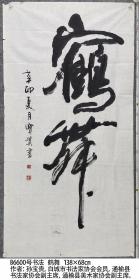 鹤舞
辛卯夏月寶贵書
86600号书法 鹤舞 138×68cm
作者: 孙宝贵, 白城市书法家协会会员, 通榆县
书法家协会副主席, 通榆县美术家协会副主席,